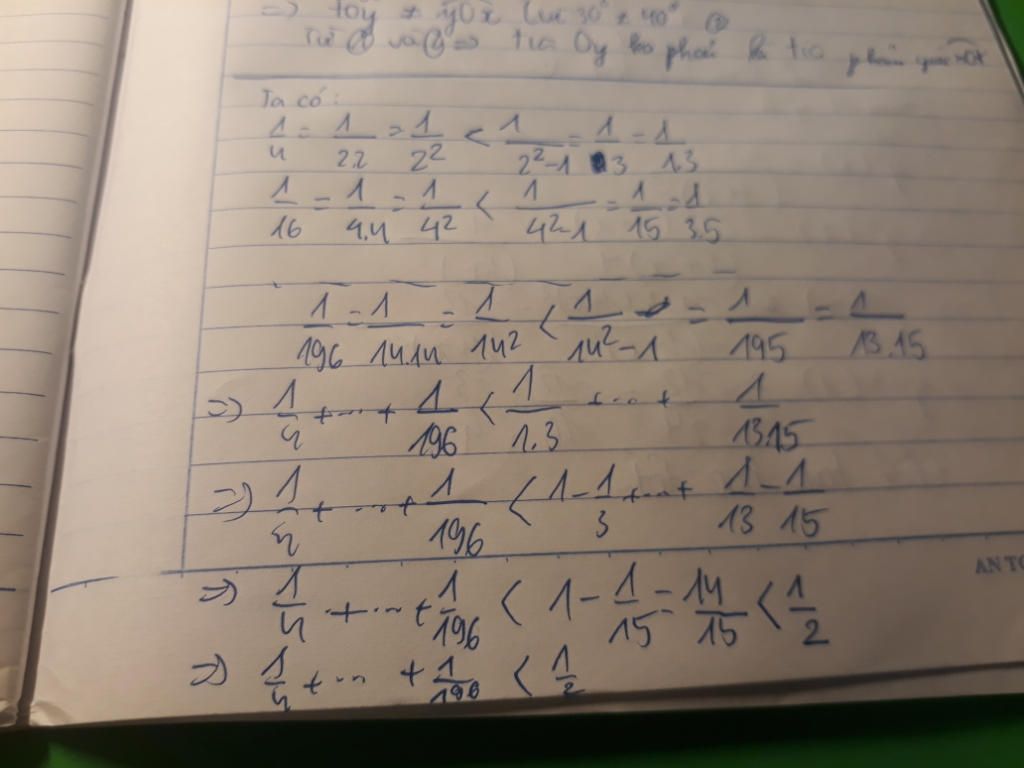 => tOy ≠ yOx (vì 30° ≠ 40° ②
Từ ① và ② => tia Oy ko phải là tia phân giác xOt
Ta có:
1/4 = 1/2.2 = 1/2² < 1/2²-1 = 1/3 = 1/1.3
1/16 = 1/4.4 = 1/4² < 1/4²-1 = 1/15 = 1/3.5
1/196 = 1/14.14 = 1/14² < 1/14²-1 = 1/195 = 1/13.15
=> 1/4 + ... + 1/196 < 1/1.3 + ... + 1/13.15
=> 1/4 + ... + 1/196 < 1 - 1/3 + ... + 1/13 - 1/15
=> 1/4 + ... + 1/196 < 1 - 1/15 = 14/15 < 1/2
=> 1/4 + ... + 1/196 < 1/2